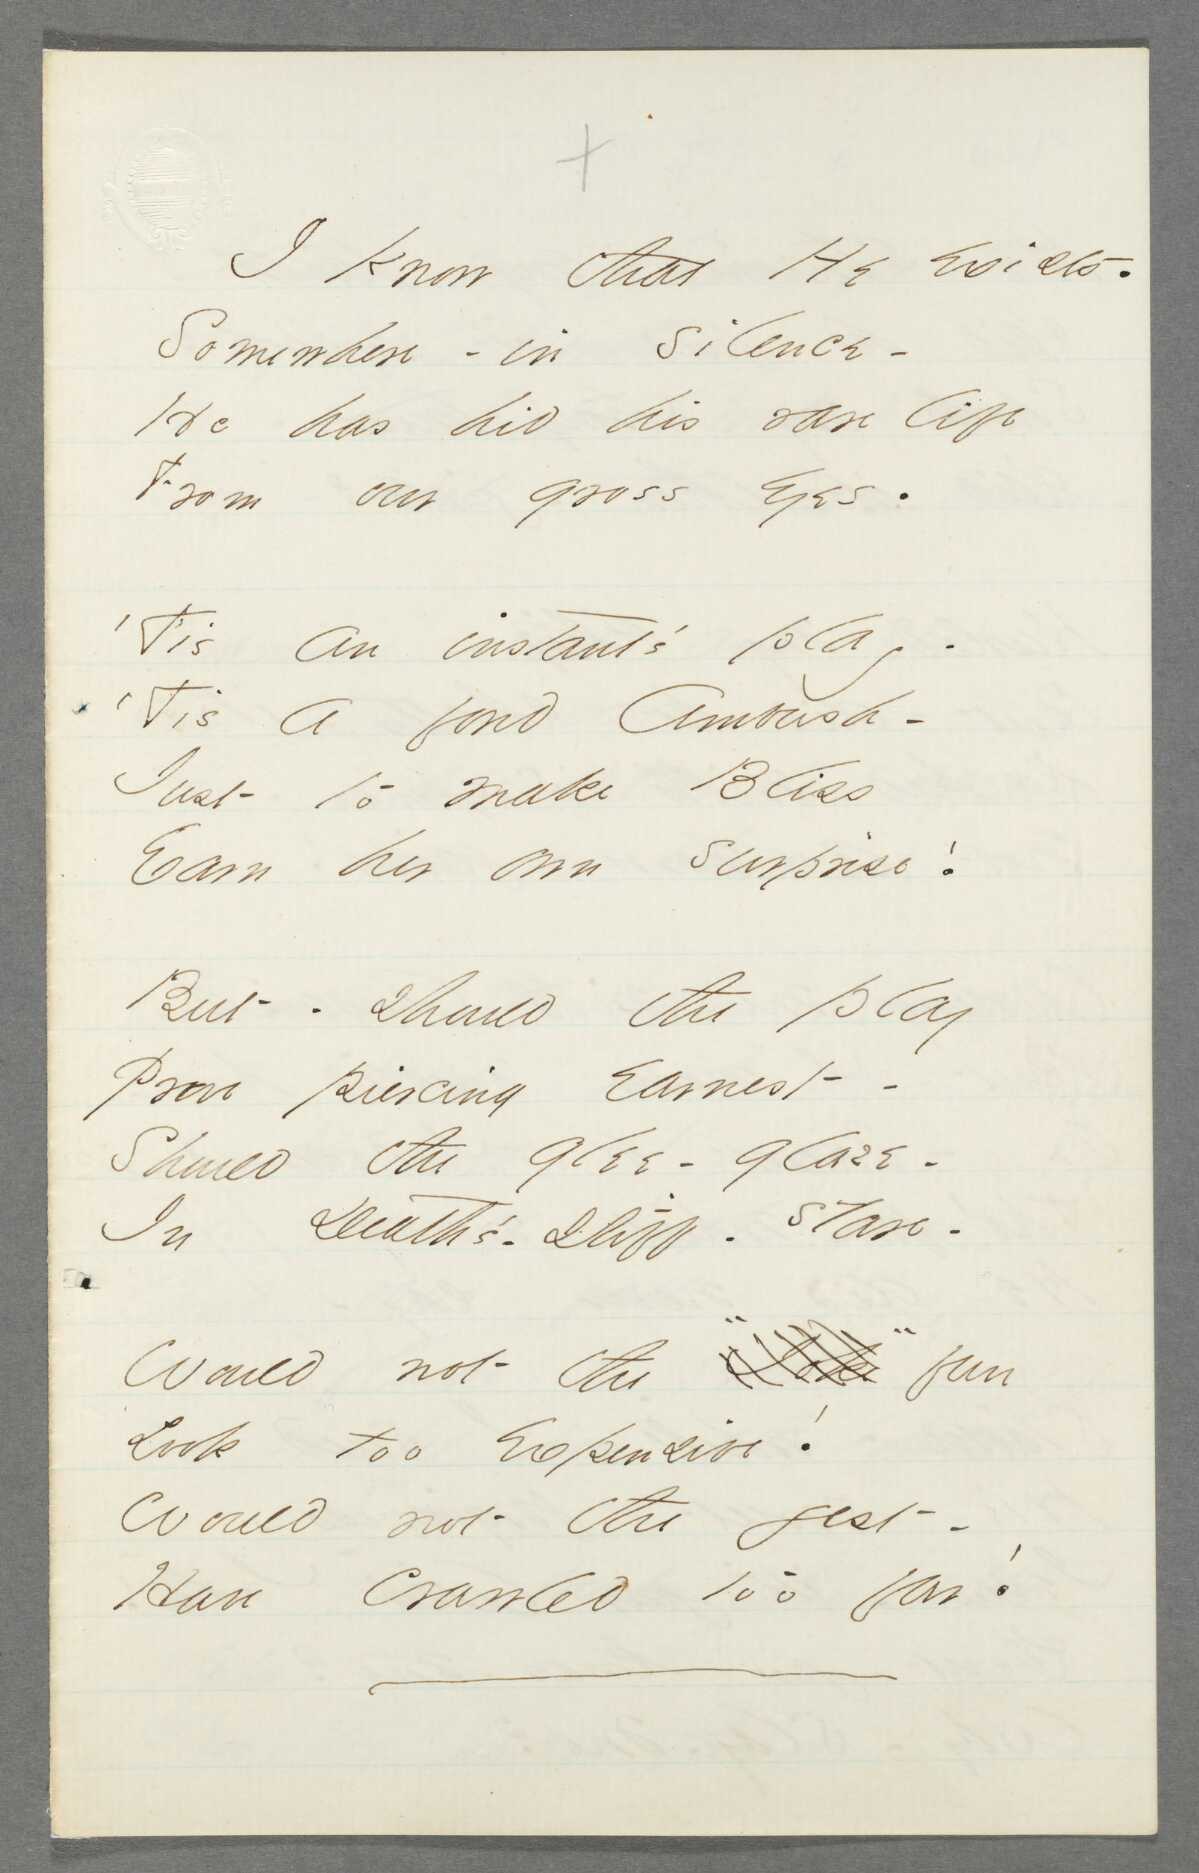 I know that He Exists.
Somewhere - in silence -
He has hid his rare life
From our gross Eyes.
'Tis an instant's play -
'Tis a fond Ambush -
Just to make Bliss
Earn her own surprise!
But - should the play
Prove piercing earnest -
Should the glee - glaze -
In Death's - stiff - stare -
Would not the fun
Look too expensive!
Would not the jest -
Have crawled too far!